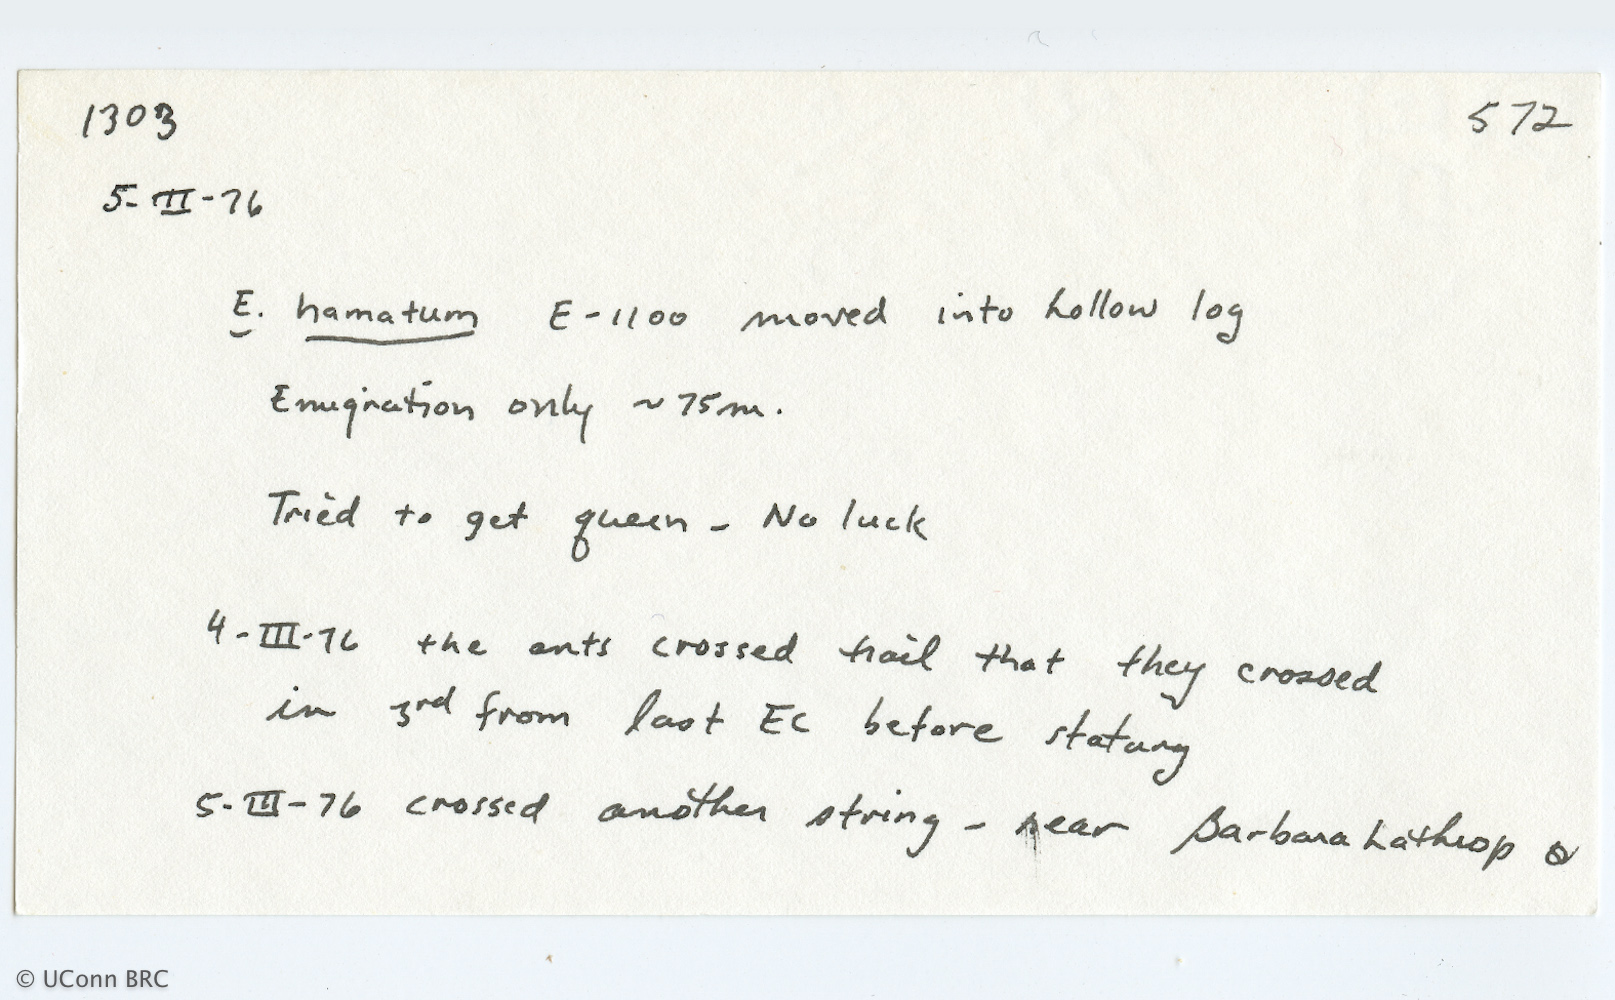 1303 572
5-III-76
E. hamatum E-1100 moved into hollow log
Emigration only ~75m.
Tried to get queen - No luck
4-III-76 the ants crossed trail that they crossed
in 3rd from last EC before statary
5-III-76 crossed another string - near Barbara Lathrop
© UConn BRC